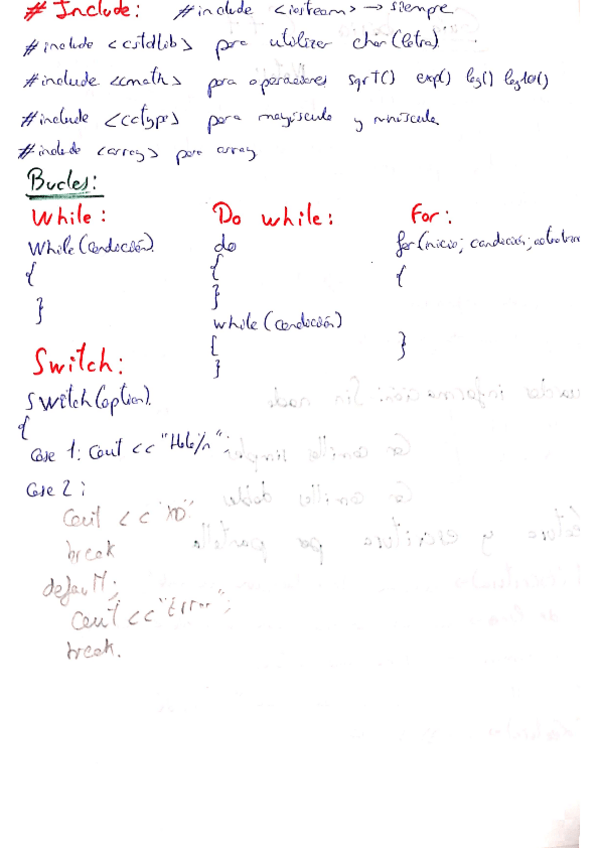 # Include: #include <iosteam> → siempre
#include <cstdlib> para utilizar char(letra)
#include <cmath> para operaciones sqrt() exp() log() log10()
#include <cctype> para mayúscula y minúscula
#include <array> para array
Bucles:
While: Do while: For:
While(Condición) do for(inicio; condición;
{ { {
} } }
while(condición)
{
}
Switch:
Switch(option)
{
Case 1: Cout << "Hola\n";
Case 2:
Cout <<
break
default:
Cout << "Error";
break.